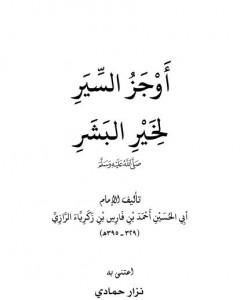 أَوْجَزُ السِّيَرِ
لِخَيْرِ البَشَرِ
صَلَّى اللهُ عَلَيْهِ وَسَلَّمَ
تأليف الإمام
أَبِي الحُسَيْنِ أَحْمَدَ بْنِ فَارِسِ بْنِ زَكَرِيَّاءَ الرَّازِيِّ
(٣٢٩ - ٣٩٥هـ)
اعتنى به
نزار حمادي